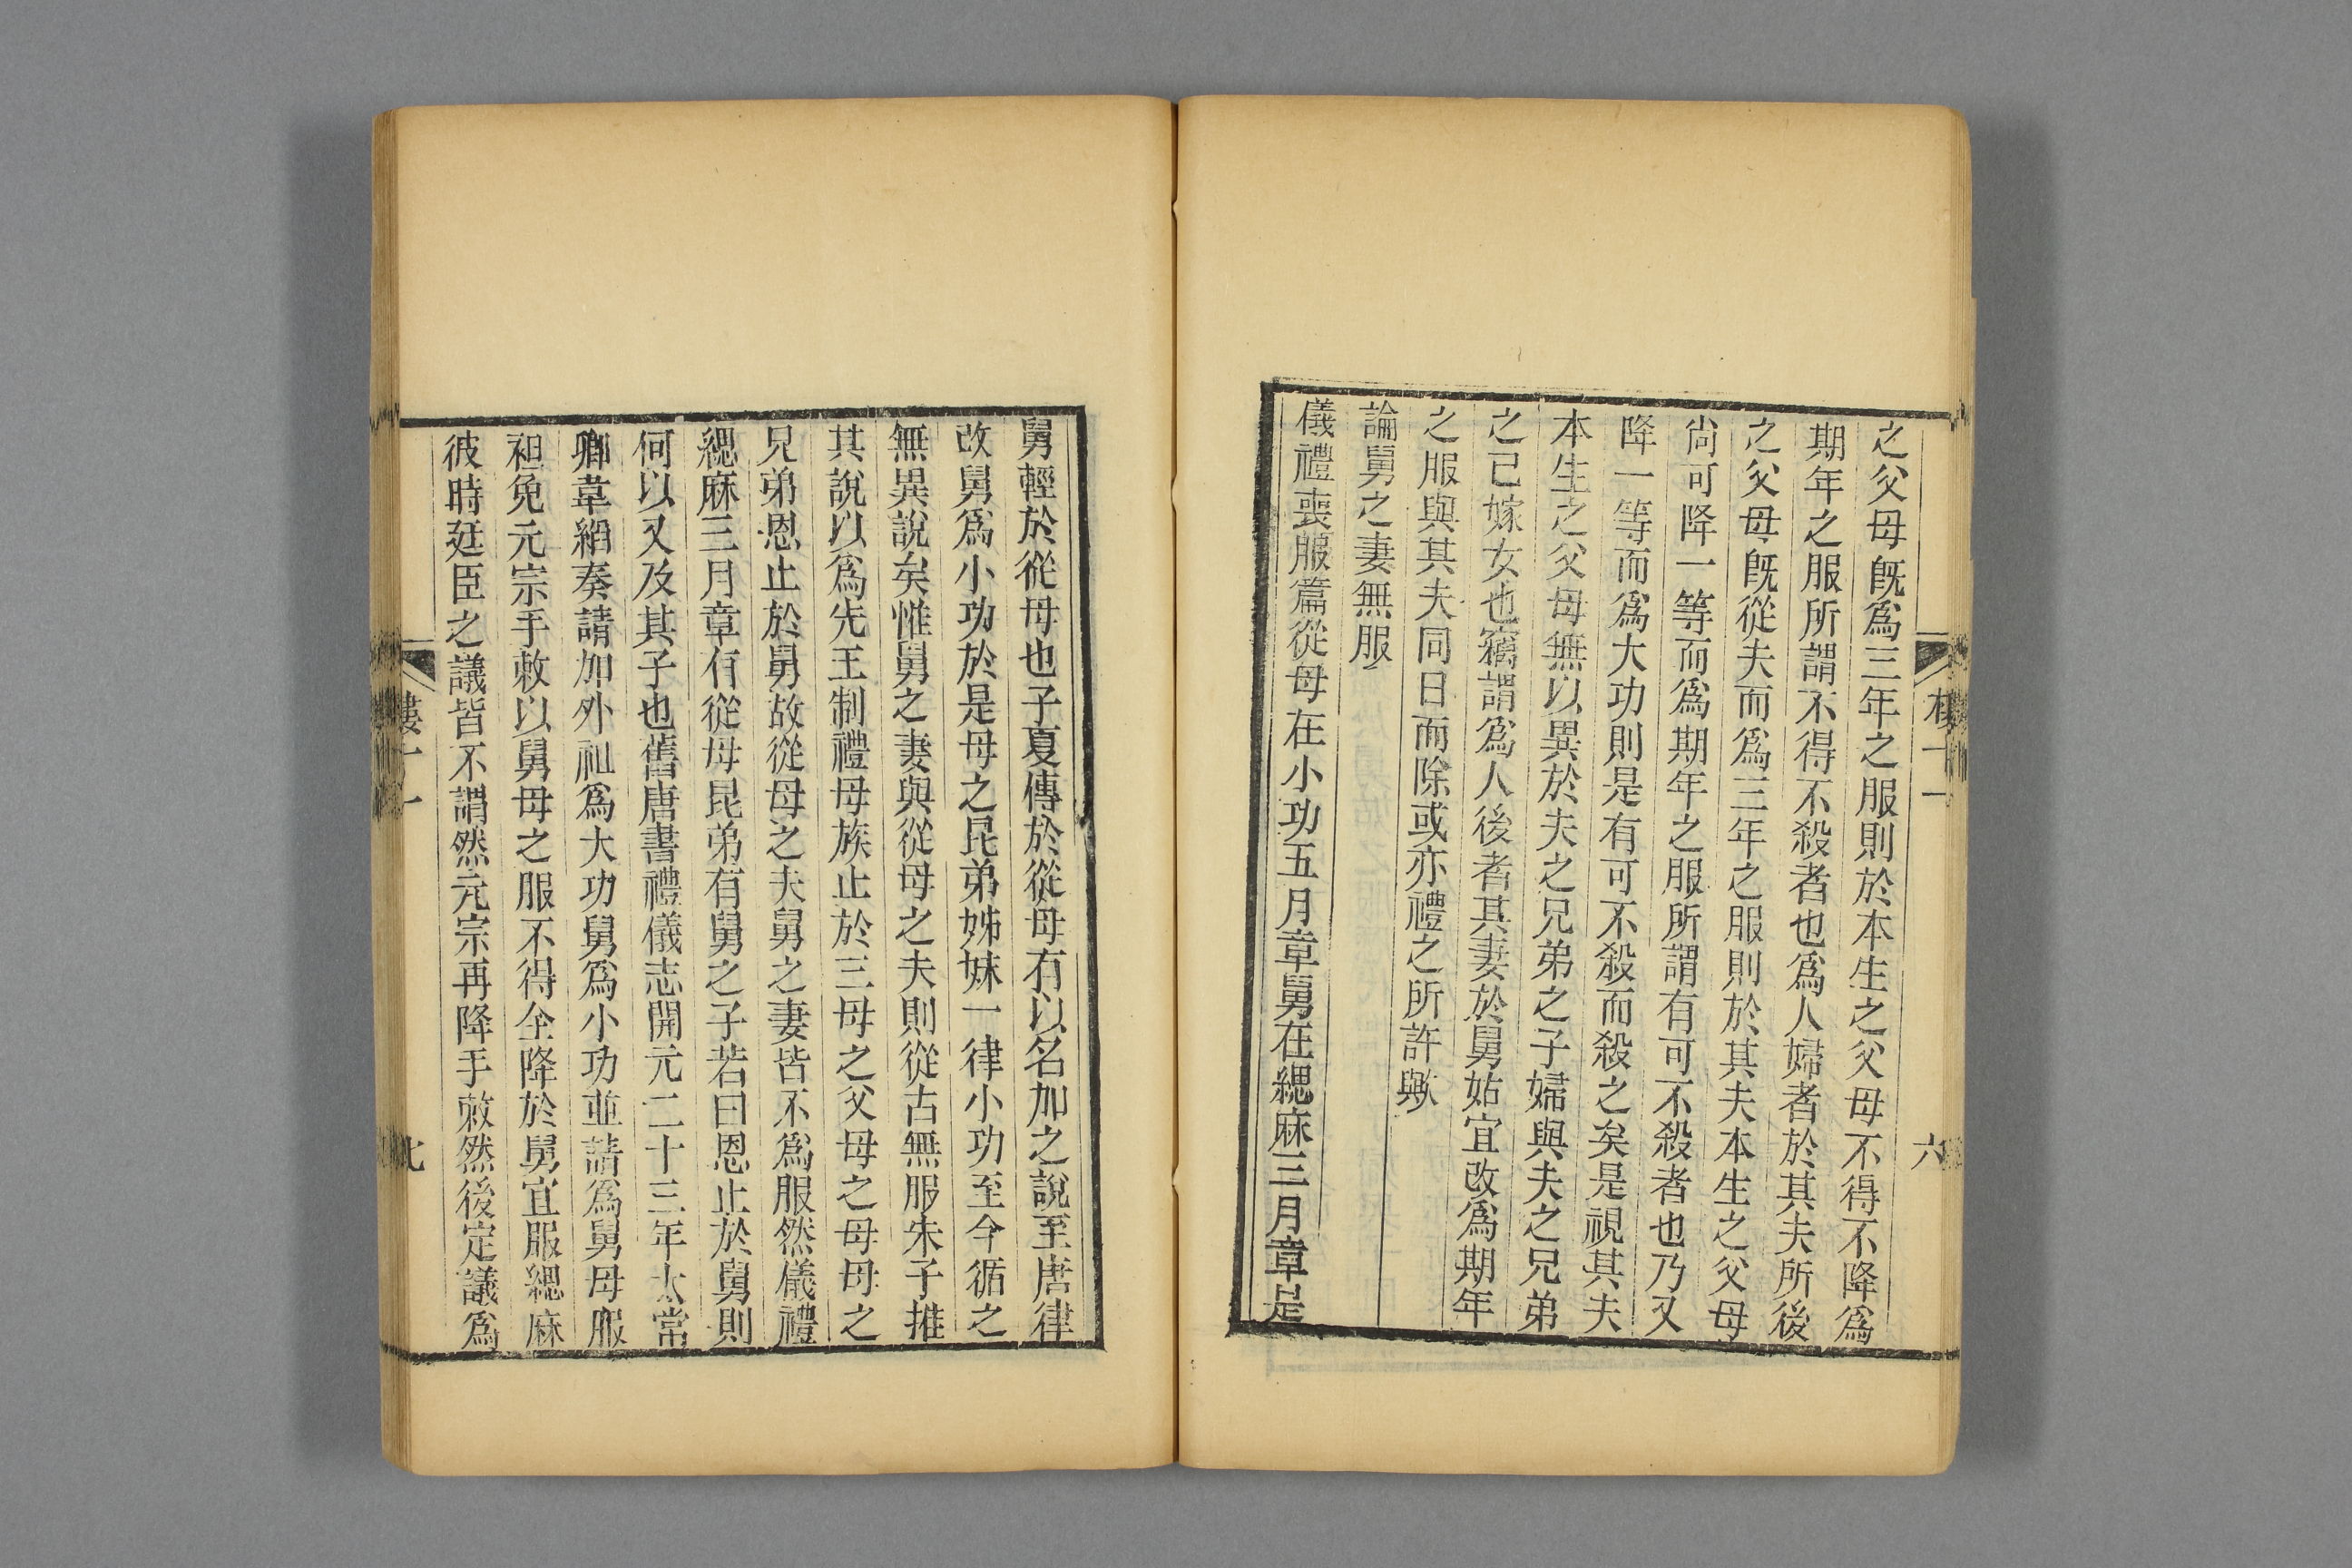 之父母旣爲三年之服則於本生之父母不得不降爲
期年之服所謂不得不殺者也爲人婦者於其夫所後
之父母旣從夫而爲三年之服則於其夫本生之父母
尙可降一等而爲期年之服所謂有可不殺者也乃又
降一等而爲大功則是有可不殺而殺之矣是視其夫
本生之父母無以異於夫之兄弟之子婦與夫之兄弟
之已嫁女也竊謂爲人後者其妻於舅姑宜改爲期年
之服與其夫同日而除或亦禮之所許歟
論舅之妻無服
儀禮喪服篇從母在小功五月章舅在緦麻三月章是
六
舅輕於從母也子夏傳於從母有以名加之說至唐律
改舅爲小功於是母之昆弟姊妹一律小功至今循之
無異說矣惟舅之妻與從母之夫則從古無服朱子推
其說以爲先王制禮母族止於三母之父母之母母之
兄弟恩止於舅故從母之夫舅之妻皆不爲服然儀禮
緦麻三月章有從母昆弟有舅之子若曰恩止於舅則
何以又及其子也舊唐書禮儀志開元二十三年太常
卿韋縚奏請加外祖爲大功舅爲小功並請爲舅母服
袒免元宗手敕以舅母之服不得全降於舅宜服緦麻
彼時廷臣之議皆不謂然元宗再降手敕然後定議爲